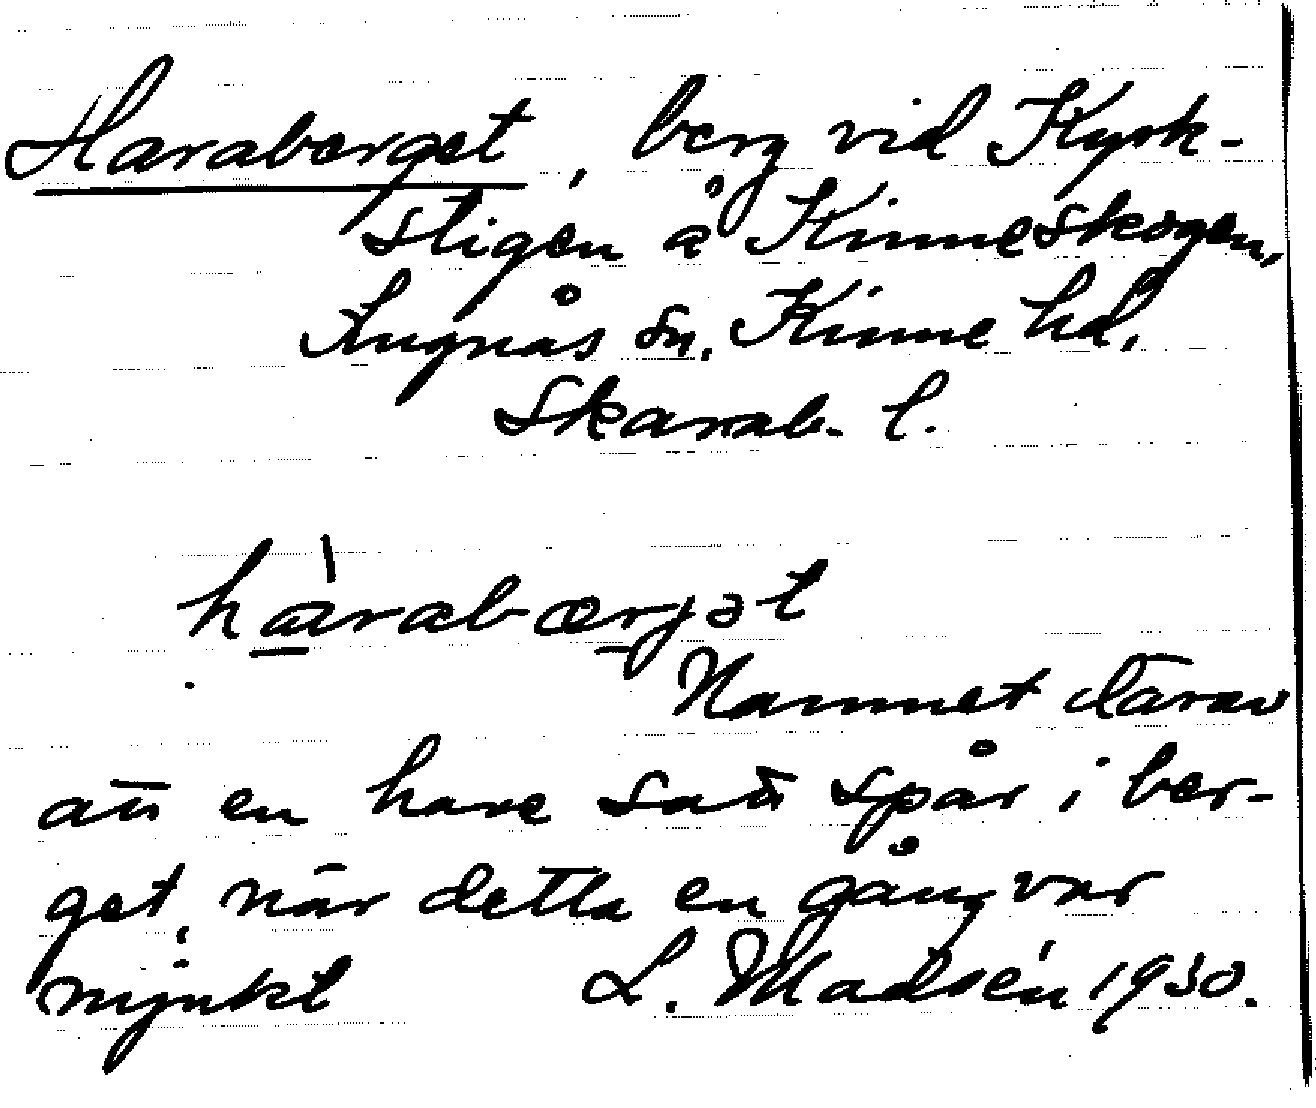 Haraberget, berg vid Kyrk-
stigen å Kinneskogen,
Lugnås sn. Kinne hd.
Skarab. l.
hàrabærjət
Namnet därav
att en hare satt spår i ber-
get, när detta en gång var
mjukt L. Madsén 1930.